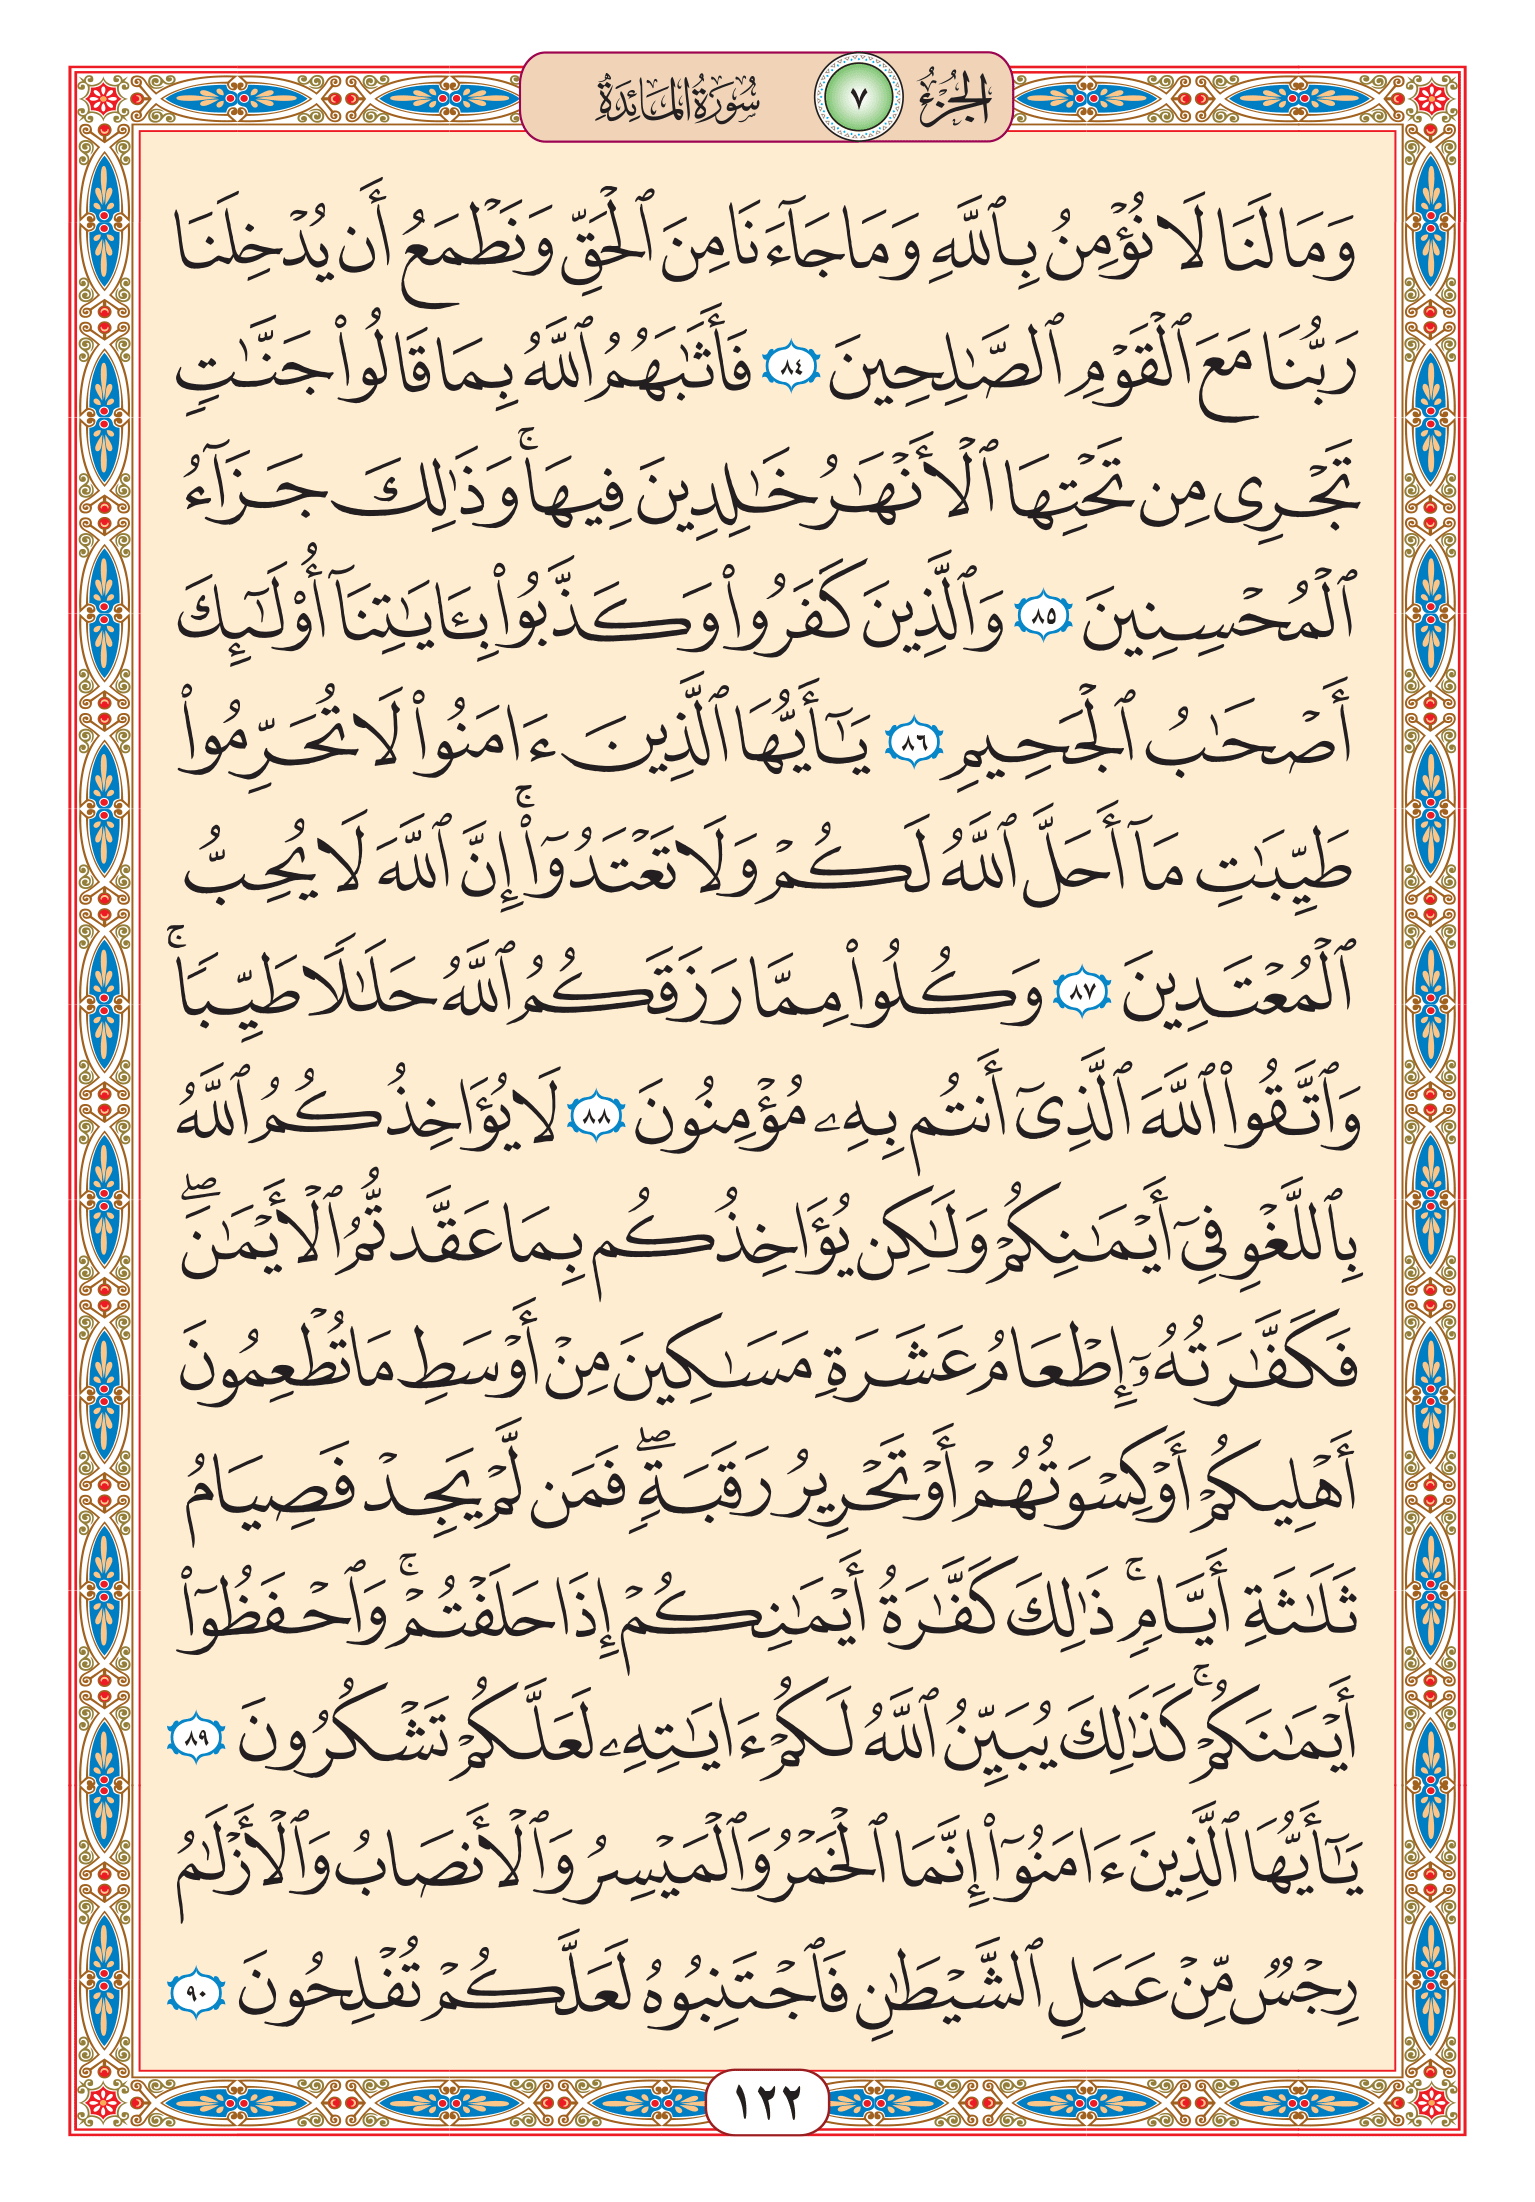 الجزء ٧ سورة المائدة
وَمَا لَنَا لَا نُؤْمِنُ بِٱللَّهِ وَمَا جَآءَنَا مِنَ ٱلْحَقِّ وَنَطْمَعُ أَن يُدْخِلَنَا
رَبُّنَا مَعَ ٱلْقَوْمِ ٱلصَّـٰلِحِينَ ٨٤ فَأَثَـٰبَهُمُ ٱللَّهُ بِمَا قَالُوا۟ جَنَّـٰتٍ
تَجْرِى مِن تَحْتِهَا ٱلْأَنْهَـٰرُ خَـٰلِدِينَ فِيهَا ۚ وَذَٰلِكَ جَزَآءُ
ٱلْمُحْسِنِينَ ٨٥ وَٱلَّذِينَ كَفَرُوا۟ وَكَذَّبُوا۟ بِـَٔايَـٰتِنَآ أُو۟لَـٰٓئِكَ
أَصْحَـٰبُ ٱلْجَحِيمِ ٨٦ يَـٰٓأَيُّهَا ٱلَّذِينَ ءَامَنُوا۟ لَا تُحَرِّمُوا۟
طَيِّبَـٰتِ مَآ أَحَلَّ ٱللَّهُ لَكُمْ وَلَا تَعْتَدُوٓا۟ ۚ إِنَّ ٱللَّهَ لَا يُحِبُّ
ٱلْمُعْتَدِينَ ٨٧ وَكُلُوا۟ مِمَّا رَزَقَكُمُ ٱللَّهُ حَلَـٰلًا طَيِّبًا ۚ
وَٱتَّقُوا۟ ٱللَّهَ ٱلَّذِىٓ أَنتُم بِهِۦ مُؤْمِنُونَ ٨٨ لَا يُؤَاخِذُكُمُ ٱللَّهُ
بِٱللَّغْوِ فِىٓ أَيْمَـٰنِكُمْ وَلَـٰكِن يُؤَاخِذُكُم بِمَا عَقَّدتُّمُ ٱلْأَيْمَـٰنَ ۖ
فَكَفَّـٰرَتُهُۥٓ إِطْعَامُ عَشَرَةِ مَسَـٰكِينَ مِنْ أَوْسَطِ مَا تُطْعِمُونَ
أَهْلِيكُمْ أَوْ كِسْوَتُهُمْ أَوْ تَحْرِيرُ رَقَبَةٍ ۖ فَمَن لَّمْ يَجِدْ فَصِيَامُ
ثَلَـٰثَةِ أَيَّامٍ ۚ ذَٰلِكَ كَفَّـٰرَةُ أَيْمَـٰنِكُمْ إِذَا حَلَفْتُمْ ۚ وَٱحْفَظُوٓا۟
أَيْمَـٰنَكُمْ ۚ كَذَٰلِكَ يُبَيِّنُ ٱللَّهُ لَكُمْ ءَايَـٰتِهِۦ لَعَلَّكُمْ تَشْكُرُونَ ٨٩
يَـٰٓأَيُّهَا ٱلَّذِينَ ءَامَنُوٓا۟ إِنَّمَا ٱلْخَمْرُ وَٱلْمَيْسِرُ وَٱلْأَنصَابُ وَٱلْأَزْلَـٰمُ
رِجْسٌ مِّنْ عَمَلِ ٱلشَّيْطَـٰنِ فَٱجْتَنِبُوهُ لَعَلَّكُمْ تُفْلِحُونَ ٩٠
١٢٢